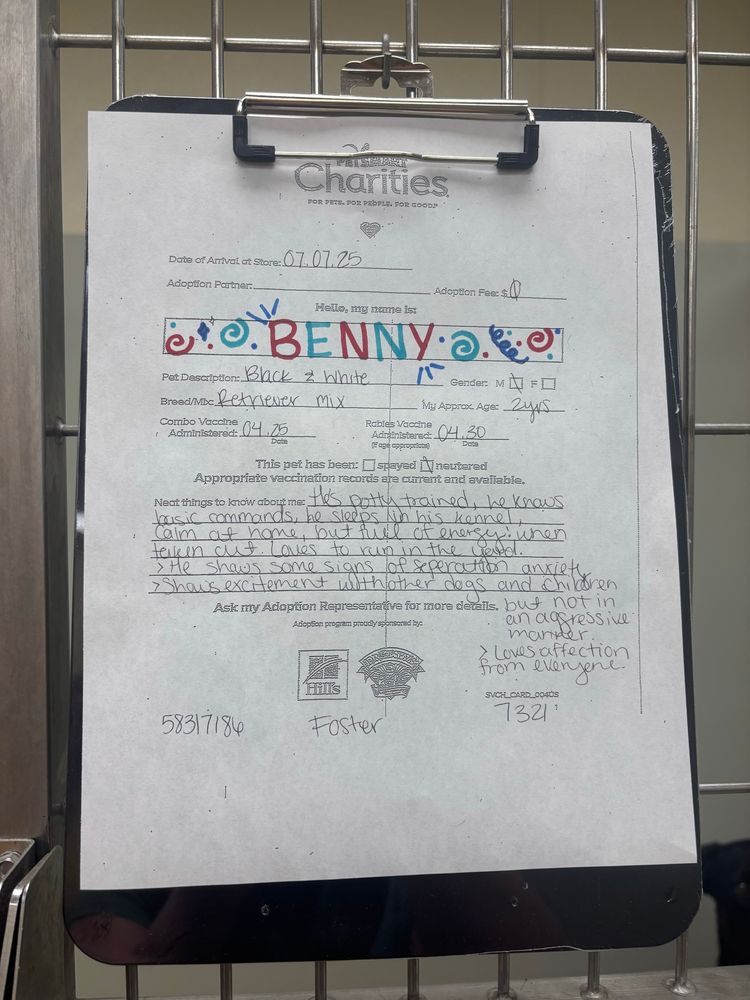 PETSMART
Charities
FOR PETS. FOR PEOPLE. FOR GOOD.®
Date of Arrival at Store: 07.07.25
Adoption Partner: Adoption Fee: $0
Hello, my name is:
BENNY
Pet Description: Black & White Gender: M F
Breed/Mix: Retriever mix My Approx. Age: 2yrs
Combo Vaccine Rabies Vaccine
Administered: 04.25 Administered: 04.30
Date (If age appropriate) Date
This pet has been: spayed neutered
Appropriate vaccination records are current and available.
Neat things to know about me: He's potty trained, he knows
basic commands, he sleeps in his kennel,
calm at home, but full of energy when
taken out. Loves to run in the yard.
> He shows some signs of seperation anxiety
> Shows excitement with other dogs and children
but not in
an aggressive
manner.
> Loves affection
from everyone.
Ask my Adoption Representative for more details.
Adoption program proudly sponsored by:
Hill's
SVCH_CARD_0040S
58317186 Foster 7321